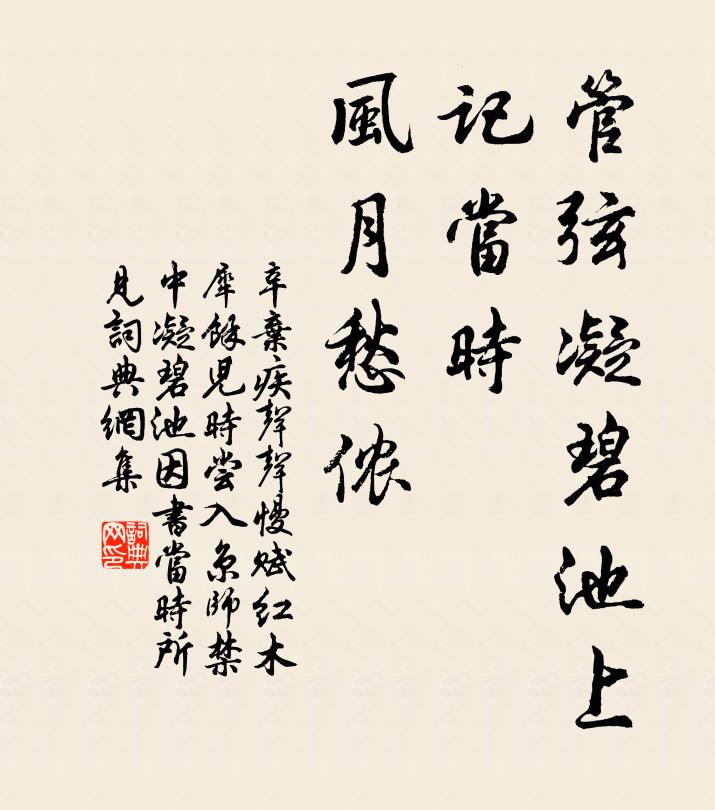 管弦凝碧池上
記當時
風月愁侬
辛棄疾聲聲慢賦紅木
犀餘兒時嘗入京師禁
中凝碧池因書當時所
見詞典網集
詞典
网印